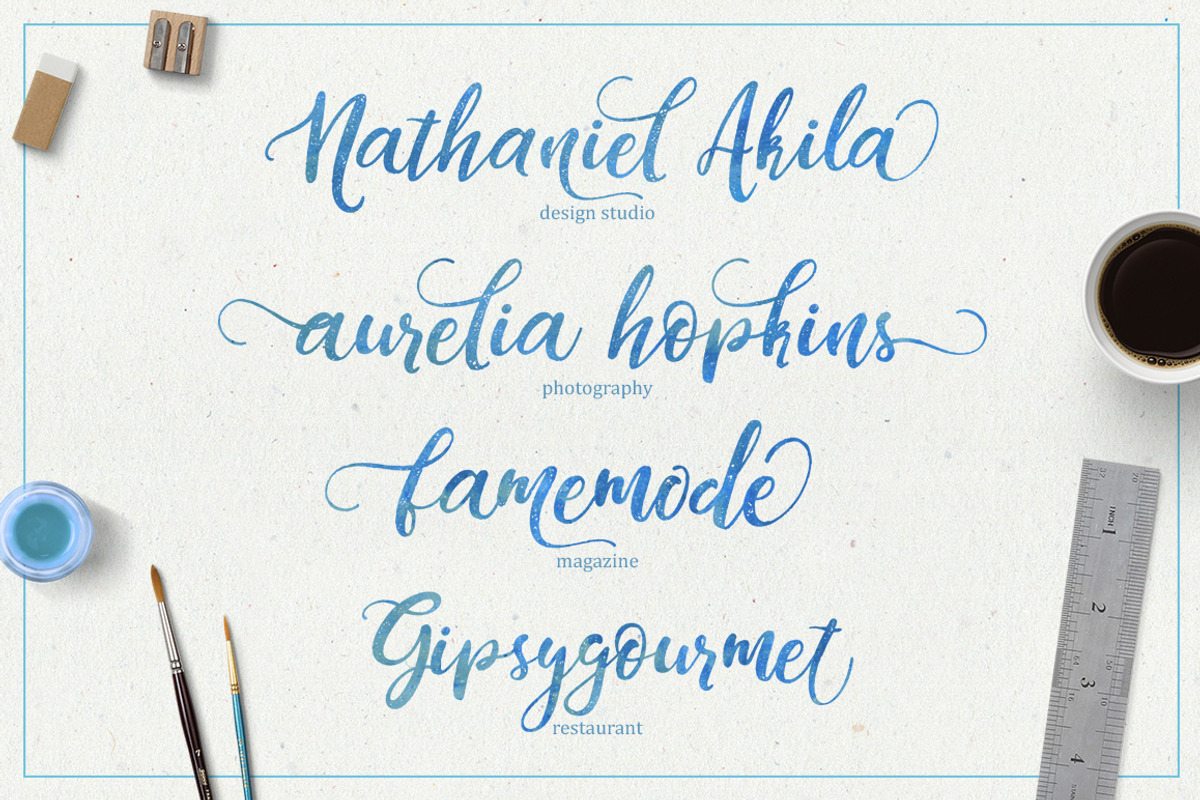 Nathaniel Akila
design studio
aurelia hopkins
photography
famemode
magazine
Gipsygourmet
restaurant
32
20
INCH
1
2
64
50
3
16
10
4